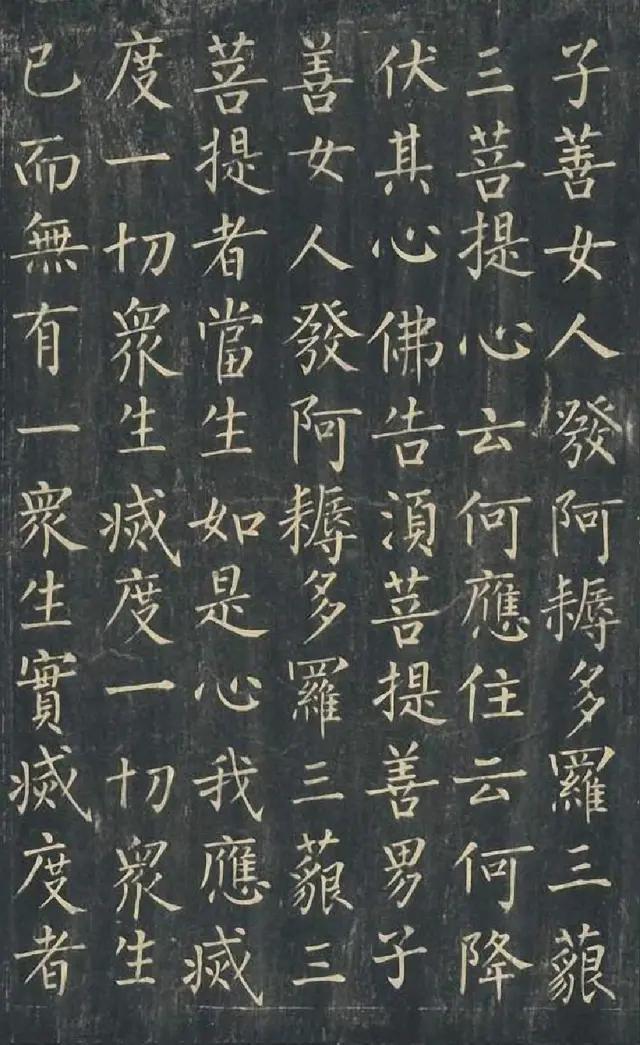 子善女人發阿耨多羅三藐
三菩提心云何應住云何降
伏其心佛告湏菩提善男子
善女人發阿耨多羅三藐三
菩提者當生如是心我應滅
度一切衆生滅度一切衆生
已而無有一衆生實滅度者